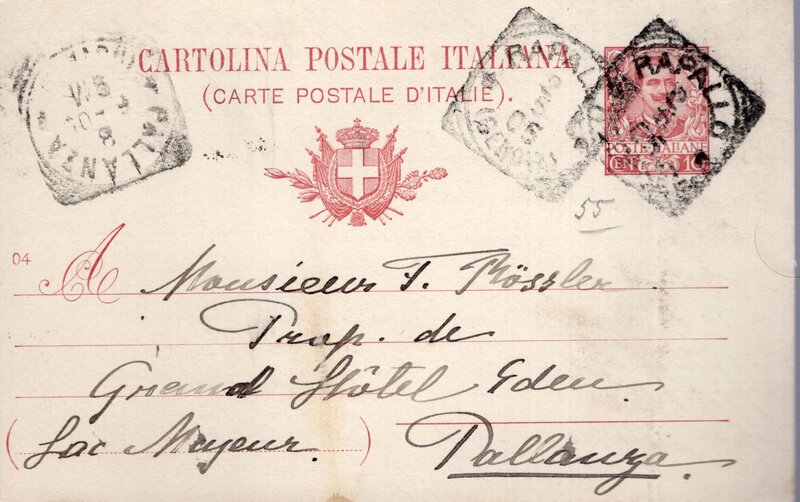 CARTOLINA POSTALE ITALIANA
(CARTE POSTALE D'ITALIE).
PALLANZA
RAPALLO
(GENOVA)
RAPALLO
POSTE ITALIANE
CENT. 10
55
04
A Monsieur F. Rössler
Prop. de
Grand Hôtel Eden
(Lac Mayeur.)
Pallanza.